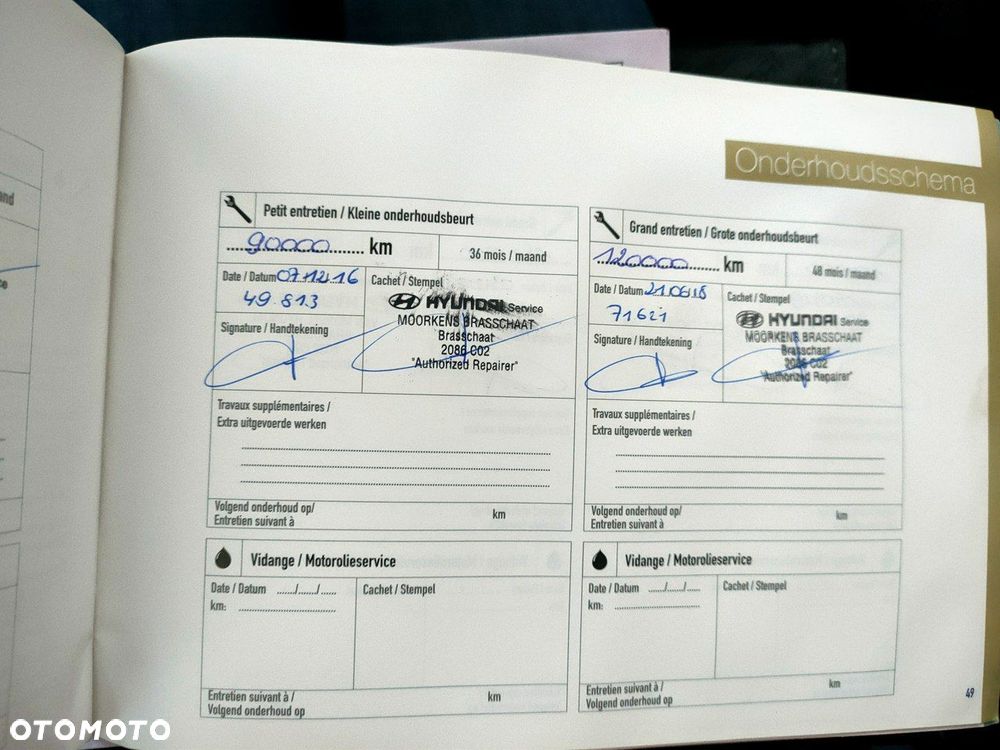 Onderhoudsschema
Petit entretien / Kleine onderhoudsbeurt
90000 km
36 mois / maand
Date / Datum 07.12.16
49.813
Cachet / Stempel
HYUNDAI Service
MOORKENS BRASSCHAAT
Brasschaat
2086 C02
"Authorized Repairer"
Signature / Handtekening
Travaux supplémentaires /
Extra uitgevoerde werken
Volgend onderhoud op/
Entretien suivant à
km
Grand entretien / Grote onderhoudsbeurt
120000 km
48 mois / maand
Date / Datum 21.06.18
71621
Cachet / Stempel
HYUNDAI Service
MOORKENS BRASSCHAAT
Brasschaat
2086 C02
"Authorized Repairer"
Signature / Handtekening
Travaux supplémentaires /
Extra uitgevoerde werken
Volgend onderhoud op/
Entretien suivant à
km
Vidange / Motorolieservice
Date / Datum ....../....../......
km:
Cachet / Stempel
Entretien suivant à /
Volgend onderhoud op
km
Vidange / Motorolieservice
Date / Datum ....../....../......
km:
Cachet / Stempel
Entretien suivant à /
Volgend onderhoud op
km
49
OTOMOTO